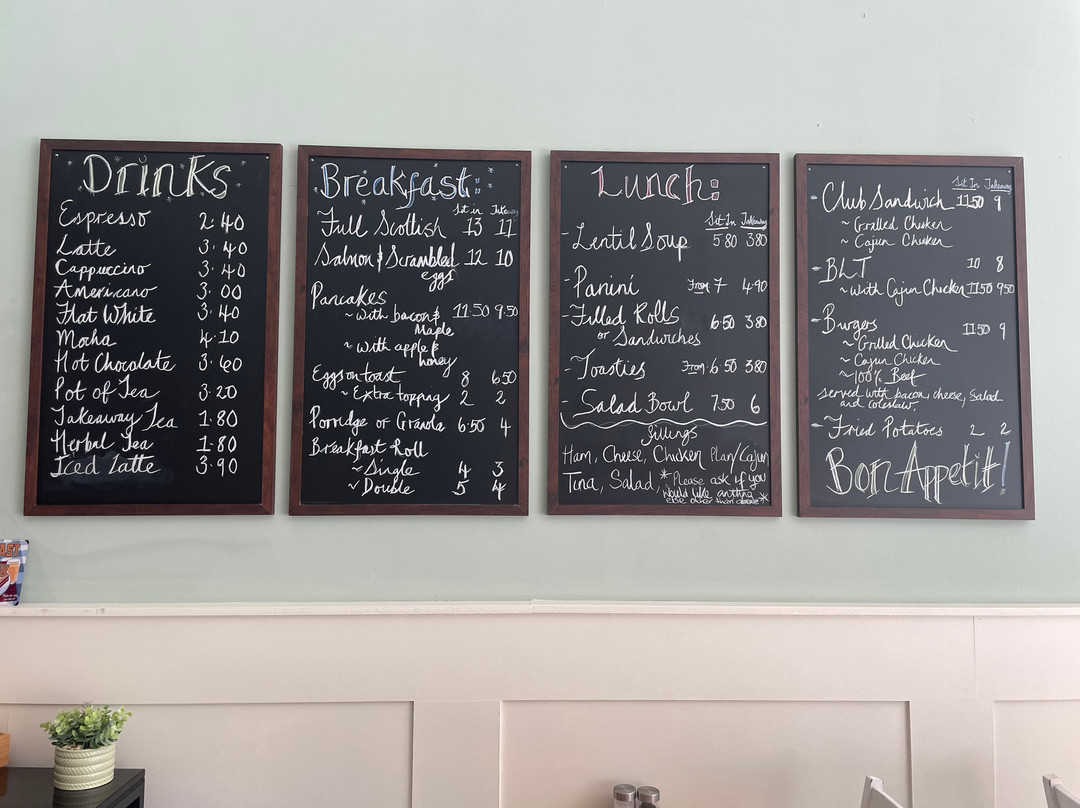 Drinks
Espresso 2.40
Latte 3.40
Cappuccino 3.40
Americano 3.00
Flat White 3.40
Mocha 4.10
Hot Chocolate 3.60
Pot of Tea 3.20
Takeaway Tea 1.80
Herbal Tea 1.80
Iced Latte 3.90
Breakfast:
Sit in Takeaway
Full Scottish 13 11
Salmon & Scrambled 12 10
eggs
Pancakes
~ With bacon & 11.50 9.50
Maple
~ With apple &
honey
Eggs on toast 8 6.50
~ Extra topping 2 2
Porridge or Granola 6.50 4
Breakfast Roll
~ Single 4 3
~ Double 5 4
Lunch:
Sit In Takeaway
- Lentil Soup 5.80 3.80
- Panini From 7 4.90
- Filled Rolls 6.50 3.80
or Sandwiches
- Toasties From 6.50 3.80
- Salad Bowl 7.50 6
fillings
Ham, Cheese, Chicken Plan/Cajun
Tuna, Salad, *Please ask if you
would like anything
else other than above*
Sit In Takeaway
- Club Sandwich 11.50 9
~ Grilled Chicken
~ Cajun Chicken
- BLT 10 8
~ With Cajun Chicken 11.50 9.50
- Burgers 11.50 9
~ Grilled Chicken
~ Cajun Chicken
~ 100% Beef
served with bacon, cheese, Salad
and coleslaw.
- Fried Potatoes 2 2
Bon Appetit!
AST